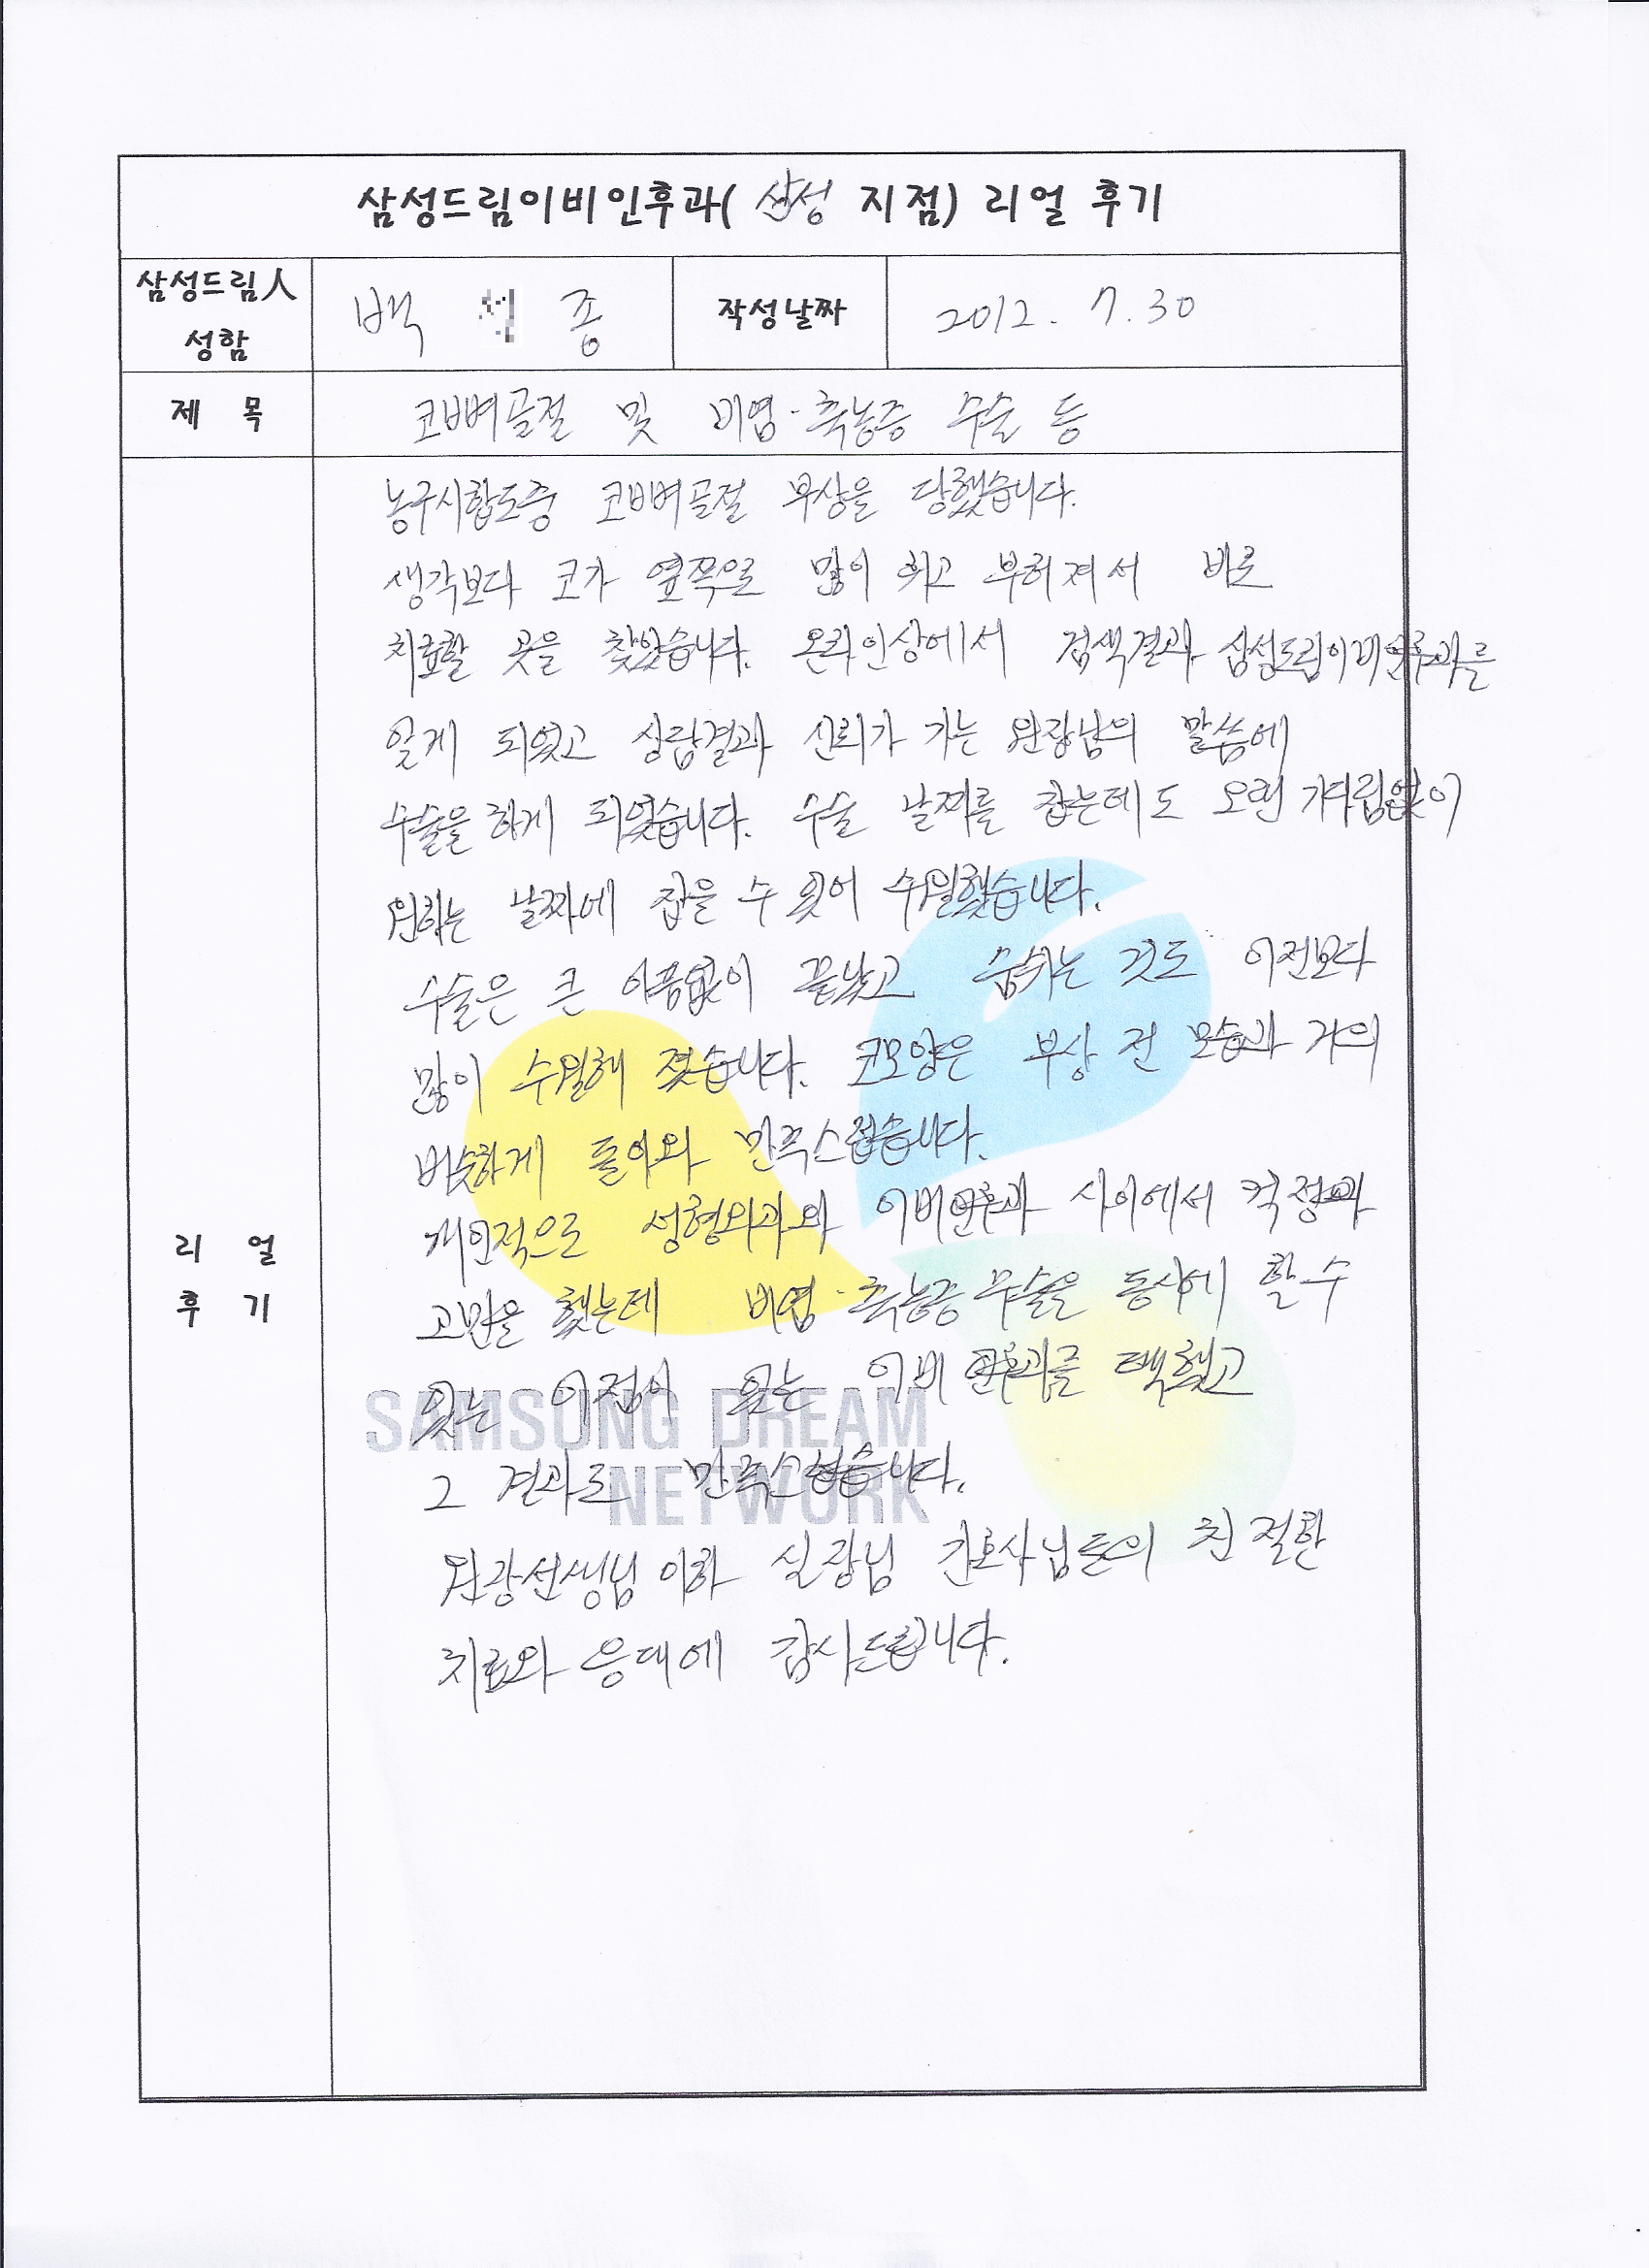 삼성드림이비인후과( 삼성 지점) 리얼 후기
삼성드림人 성함
백 종
작성날짜
2012. 7. 30
제 목
코뼈골절 및 비염·축농증 수술 등
리 얼 후 기
농구시합도중 코뼈골절 부상을 당했습니다.
생각보다 코가 옆쪽으로 많이 휘고 부러져서 바로
치료할 곳을 찾았습니다. 온라인상에서 검색결과 삼성드림이비인후과를
알게 되었고 상담결과 신뢰가 가는 원장님의 말씀에
수술을 하게 되었습니다. 수술 날짜를 잡는데도 오랜 기다림없이
원하는 날짜에 잡을 수 있어 수월했습니다.
수술은 큰 아픔없이 끝났고 숨쉬는 것도 이전보다
많이 수월해 졌습니다. 코모양은 부상 전 모습과 거의
비슷하게 돌아와 만족스럽습니다.
개인적으로 성형외과와 이비인후과 사이에서 걱정과
고민을 했는데 비염·축농증 수술을 동시에 할 수
있는 이점이 있는 이비인후과를 택했고
그 결과로 만족스럽습니다.
원장선생님 이하 실장님 간호사님들의 친절한
치료와 응대에 감사드립니다.
SAMSUNG DREAM
NETWORK